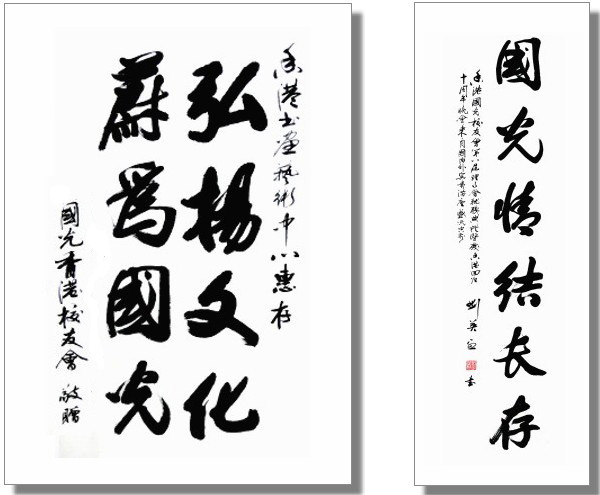 香港书画藝術中心惠存
弘揚文化
蔚為國光
國光香港校友會 敬贈
國光情结长存
香港國光校友會第八屆理事會就職典禮暨慶香港回歸
十周年晚會
書